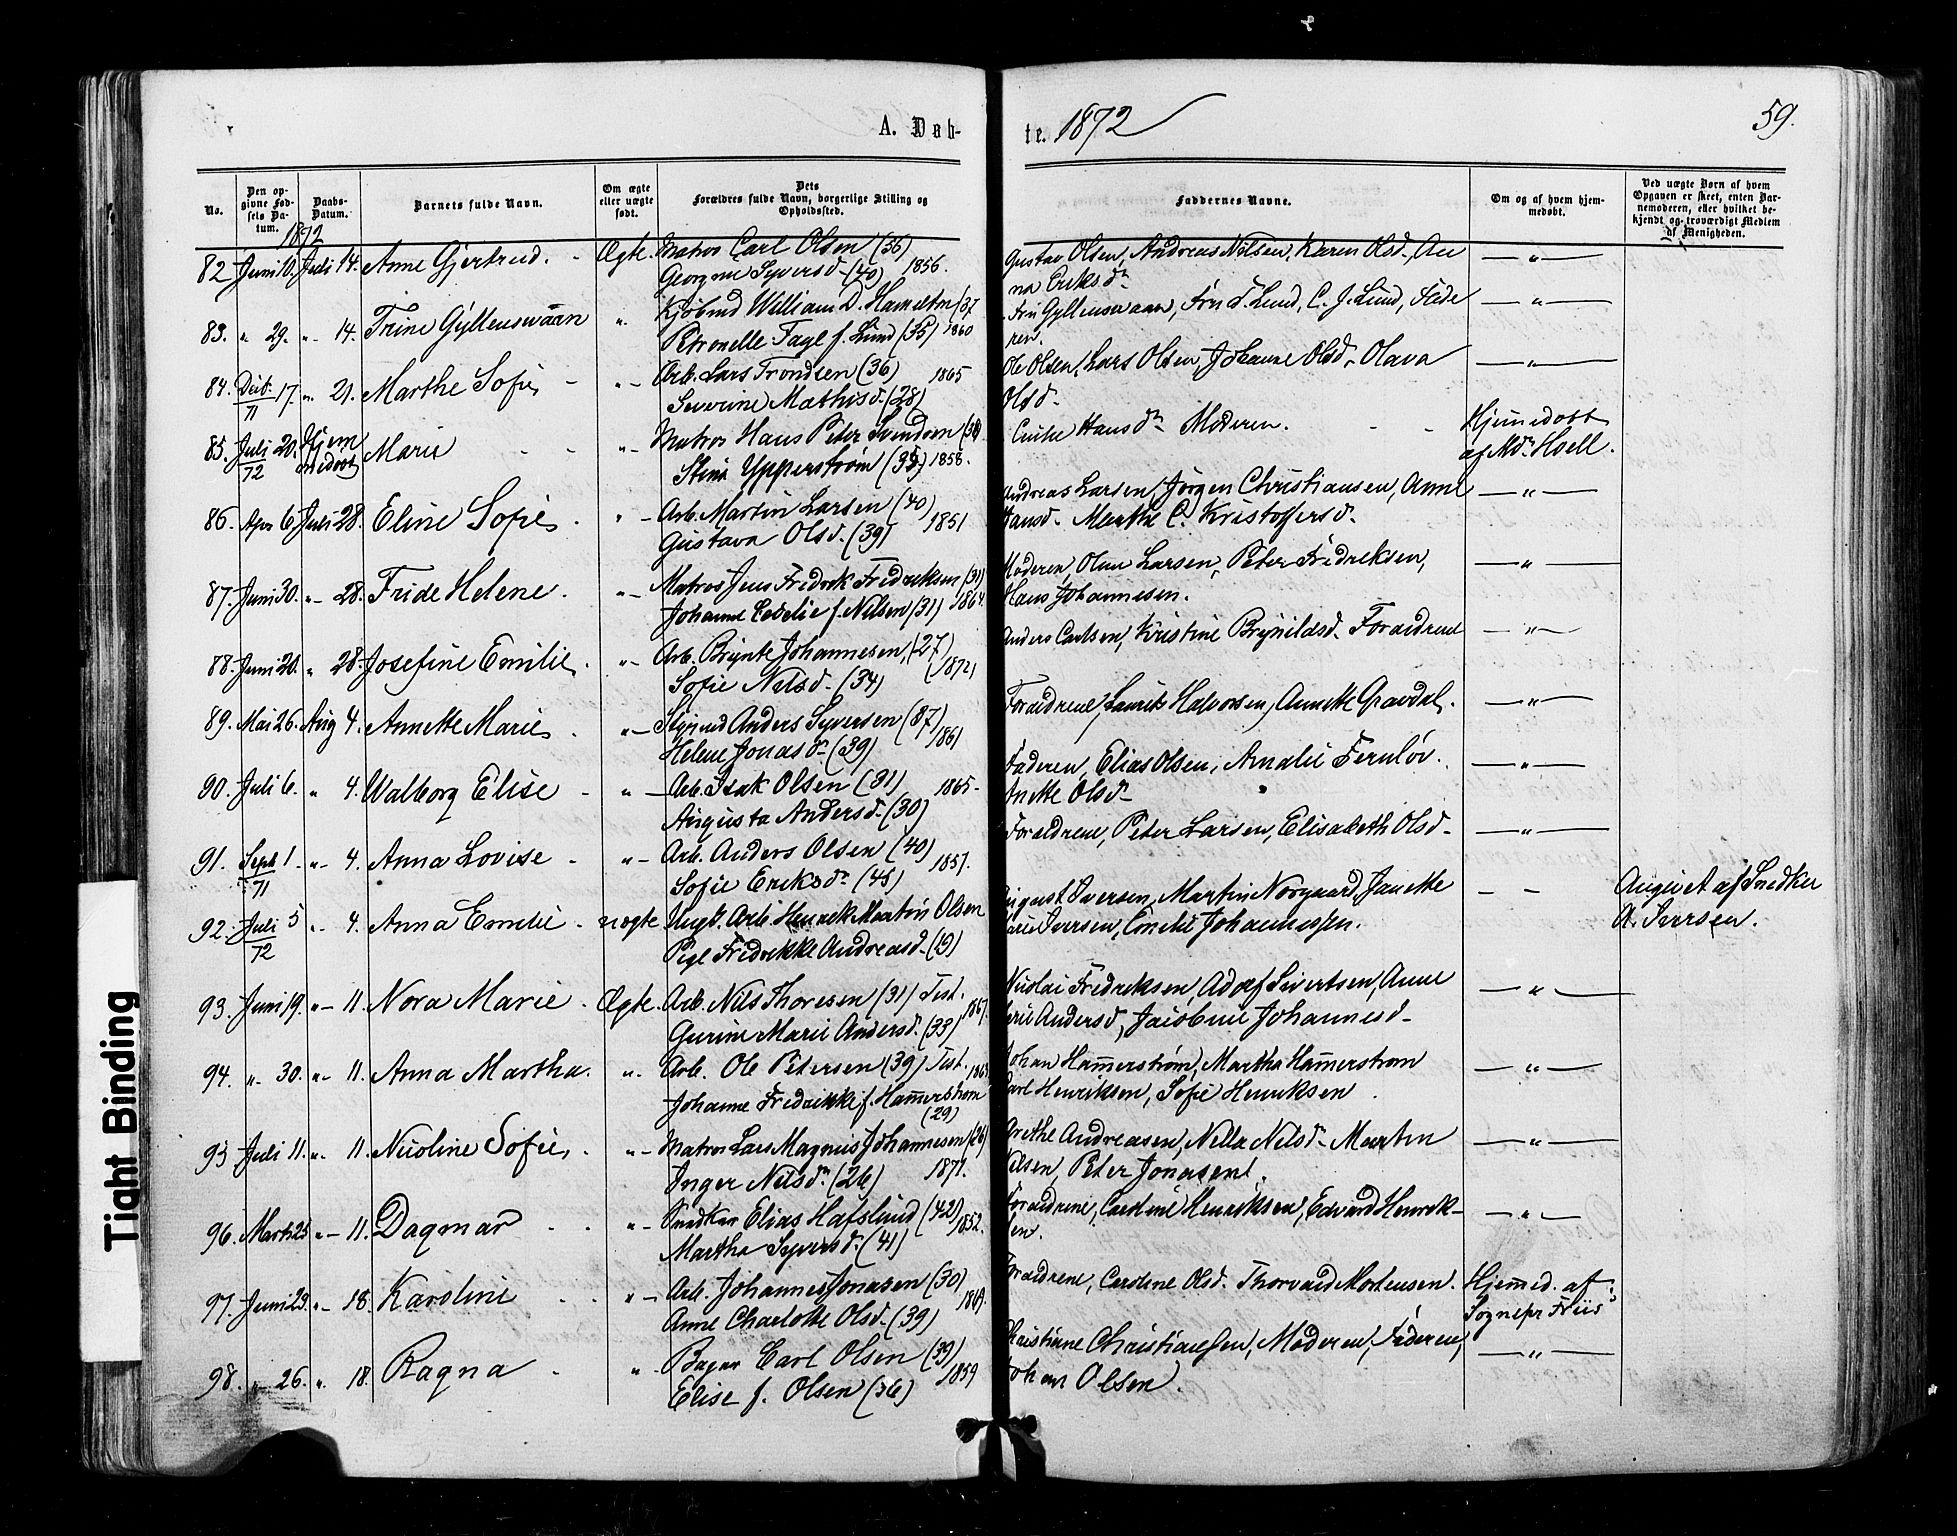 A. Døb-
te. 1872
59.
No.
Den op-
givne Fød-
sels Da-
tum.
Daabs-
Datum.
Barnets fulde Navn.
Om ægte
eller uægte
født.
Dets
Forældres fulde Navn, borgerlige Stilling og
Opholdssted.
Faddernes Navne.
Om og af hvem hjem-
medøbt.
Ved uægte Børn af hvem
Opgaven er skeet, enten Bar-
nemoderen, eller hvilket be-
kjendt og troværdigt Medlem
af Menigheden.
1872
82 Juni 10. Juli 14. Anne Gjertrud. - Ægte. Matros Carl Olsen (36)
Georgine Syversd. (40) 1856.
Gustav Olsen, Andreas Nilsen, Karen Olsd., An
na Eriksdr. — " —
83. " 29. " 14. Trine Gyllenswaan ". Kjøbmd William D. Hamelton (37
Petronelle Fagl f. Lund (35) 1860
Fru Gyllenswaan, Frk Lund, C. J. Lund, Fade
ren. — " —
84. Decb. 17. " 21. Marthe Sofie - " - Arb. Lars Trondsen (36) 1865
71
Severine Mathisd. (28)
Ole Olsen, Lars Olsen, Johanne Olsd., Olava
Olsd. — " —
85. Juli 20. Hjem Marie " - Matros Hans Peter Svendsen (38)
72 medøbt
Stina Ypperstrøm (35) 1858.
Hansdr. Moderen.
Hjemmedøbt
af Mdm Hoell.
86. Apr 6. Juli 28. Eline Sofie. " - Arb. Martin Larsen (40)
Gustava Olsd. (39) 1851
Andreas Larsen, Jørgen Christiansen, Anne
Hansd. Marthe C. Kristoffersd. — " —
87. Juni 30. " - 28. Fride Helene. " - Matros Jens Fredrik Fredriksen (31)
Johanne Cecelie f. Nilsen (31) 1864.
Moderen, Olun Larsen, Peter Fredriksen,
Hans Johannesen. — " —
88. Juni 20. " 28. Josefine Emilie. " - Arb. Brynte Johannesen, (27)
Sofie Nilsd. (34) (1872)
Anders Carlsen, Kristine Brynildsd. Forældrene — " —
89. Mai 26. Aug 4. Annette Marie. " - Styrmd Anders Syversen (37)
Helene Jonasdr. (39) 1861
Forældrene, Laurits Halvorsen, Annette Gravdal. — " —
90. Juli 6. " 4. Walborg Elise - " - Arb. Isak Olsen (31) 1865-
Augusta Andersd. (30)
Faderen, Elias Olsen, Amalie Fernløv.
Anette Olsd. — " —
91. Septb 1 " - 4. Anna Lovise - " - Arb. Anders Olsen (40)
71
Sofie Eriksdr. (45) 1857.
Forældrene, Peter Larsen, Elisabeth Olsd. — " —
92. Juli 5 " - 4. Anna Emilie - uægte Ungk. Arb. Henrik Martin Olsen
72
Pige Fredrikke Andreasd. (19)
August Iversen, Martin Norgaard, Janette
Marie Iversen, Emelie Johannessen. — —
Angivet af Snedker
A. Iversen.
93. Juni 19. " - 11. Nora Marie. Ægte. Arb. Nils Thoresen (31) Tist.
Gurine Marie Andersd. (33) 1867.
Nicolai Fredriksen, Adolf Sivertsen, Anne
Marie Andersd, Jacobine Johannesd. — " —
94. " 30. " - 11. Anna Martha. ". Arb. Ole Petersen (39) Tist.
Johanne Fredrikke f. Hammerstrøm
(29)
Johan Hammerstrøm, Martha Hammerstrøm
Carl Henriksen, Sofie Henriksen. — " —
95 Juli 11. " - 11. Nicoline Sofie. " - Matros Lars Magnus Johannesen (26)
Inger Nilsdr. (26) 1871.
Grethe Andreasen, Nella Nilsdr. Martin
Nilsen, Peter Jonasen. — " —
96. Marts 25 " - 11. Dagmar - " - Snedker Elias Hafslund (42)
Martha Syversdr. (41) 1852.
Forældrene, Caroline Henriksen, Edvard Henrik-
sen. — " —
97. Juni 23. " - 18. Karoline - " - Arb. Johannes Jonasen (30)
Anne Charlotte Olsd. (39) 1869.
Forældrene, Caroline Olsd. Thorvald Mortensen.
Hjemmed. af
Sognepr Friis
98. " 26. " 18. Ragna - " - Bager Carl Olsen (39)
Elise f. Olsen (36) 1859
Christiane Christiansen, Moderen, Faderen,
Johan Olsen. — " —
Tight Binding